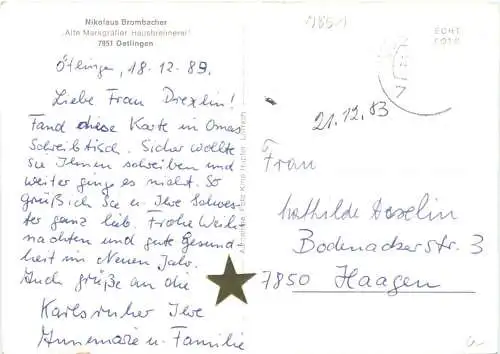 Nikolaus Brombacher
„Alte Markgräfler Hausbrennerei"
7851 Oetlingen
Ötlingen, 18.12.89.
Liebe Frau Drexlin!
Fand diese Karte in Omas
Schreibtisch. Sicher wollte
sie Ihnen schreiben und
weiter ging es nicht. So
grüß ich Sie u. Ihre Schwes-
ter ganz lieb. Frohe Weih-
nachten und gute Gesund
heit im Neuen Jahr.
Auch Grüße an die
Karlsruher Ihre
Annemarie u. Familie
7851
ECHT
FOTO
7
21.12.83
Frau
Mathilde
Bodenackerstr. 3
7850 Haagen